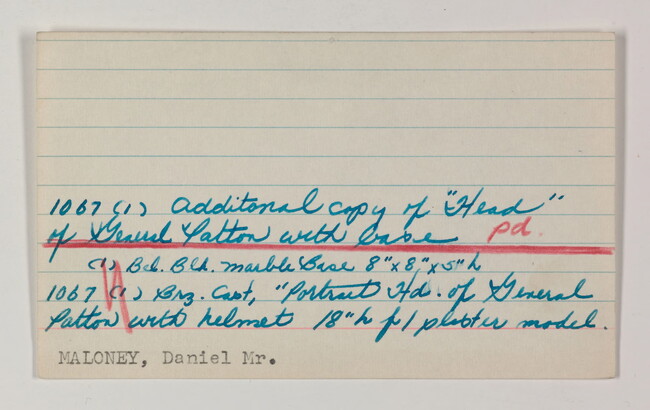 1067 (1) Additonal copy of "Head"
of General Patton with base pd.
(1) Bel. Blk. Marble Base 8" x 8" x 5" h
1067 (1) Brz. Cast, "Portrait Hd. of General
Patton with helmet 18" h f/ plaster model.
MALONEY, Daniel Mr.